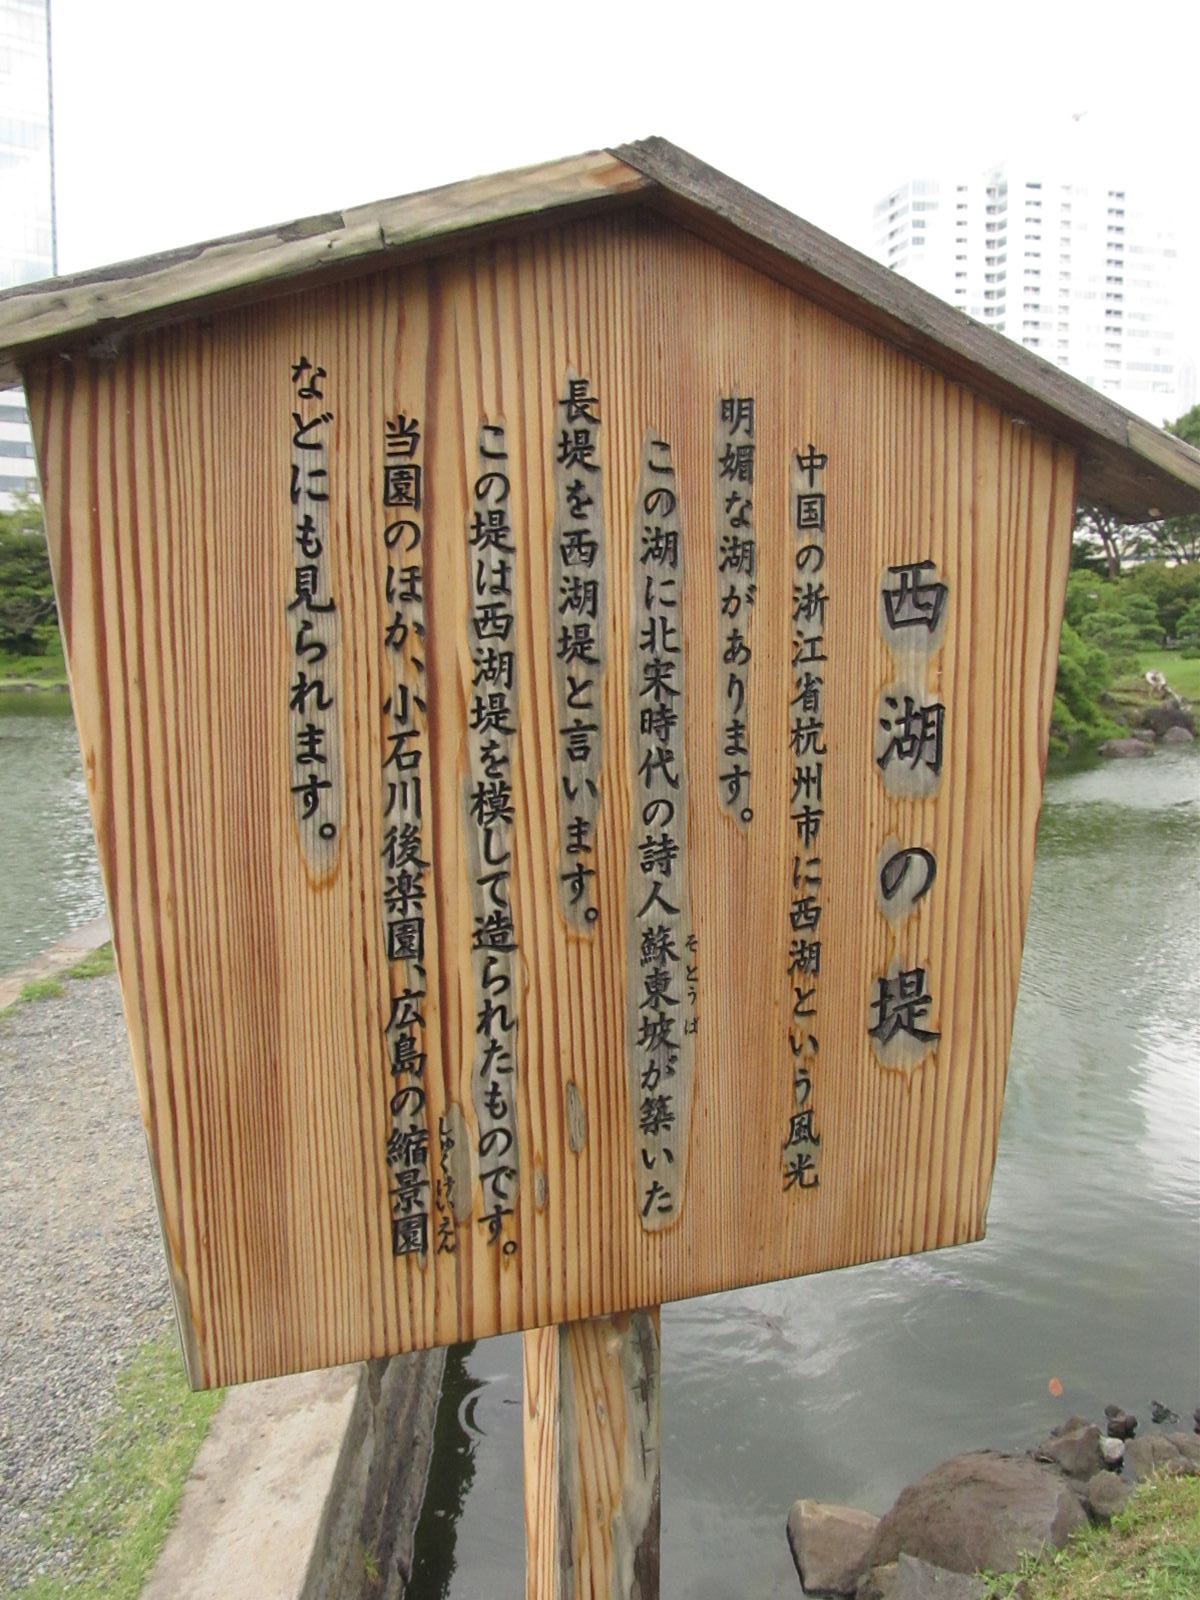 西湖の堤
中国の浙江省杭州市に西湖という風光
明媚な湖があります。
そとうば
この湖に北宋時代の詩人蘇東坡が築いた
長堤を西湖堤と言います。
この堤は西湖堤を模して造られたものです。
しゅくけいえん
当園のほか、小石川後楽園、広島の縮景園
などにも見られます。